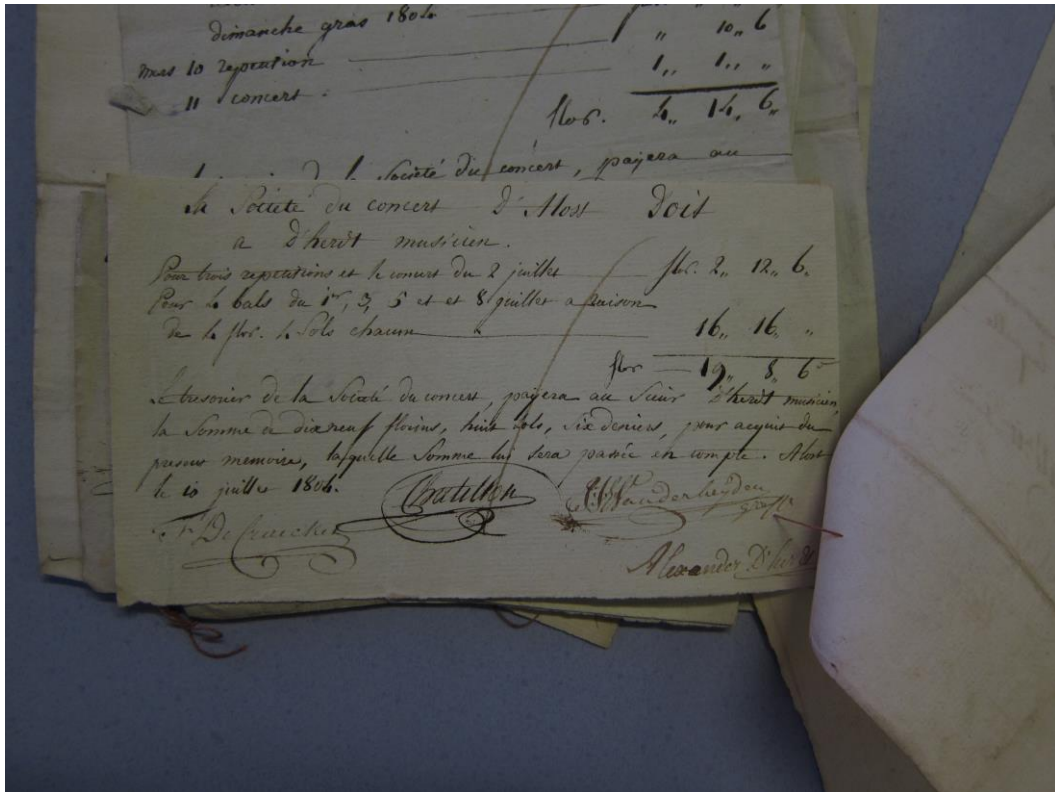 dimanche gras 1804 " 10,, 6
mars 10 repetition 1,, 1,, "
11 concert.
flor. 4,, 14,, 6,,
Societé du concert, payera au
la Societé du concert D'Alost Doit
a D'herdt musicien.
Pour trois repetitions et le concert du 2 juillet flor. 2,, 12,, 6.
Pour 4 bals du 1er, 3, 5 et et 8 juillet a raison
de 4 flor. 4 sols chacun 16,, 16,, "
flor 19,, 8,, 6
Le tresorier de la Societé du concert, payera au Sieur D'herdt musicien,
la Somme de dix neuf florins, huit sols, six deniers, pour acquit du
present memoire, laquelle Somme lui sera passée en compte. Alost
le 10 juillet 1804.
Chatillon Vanderheyden
F. De Craecker
Alexander D'herdt